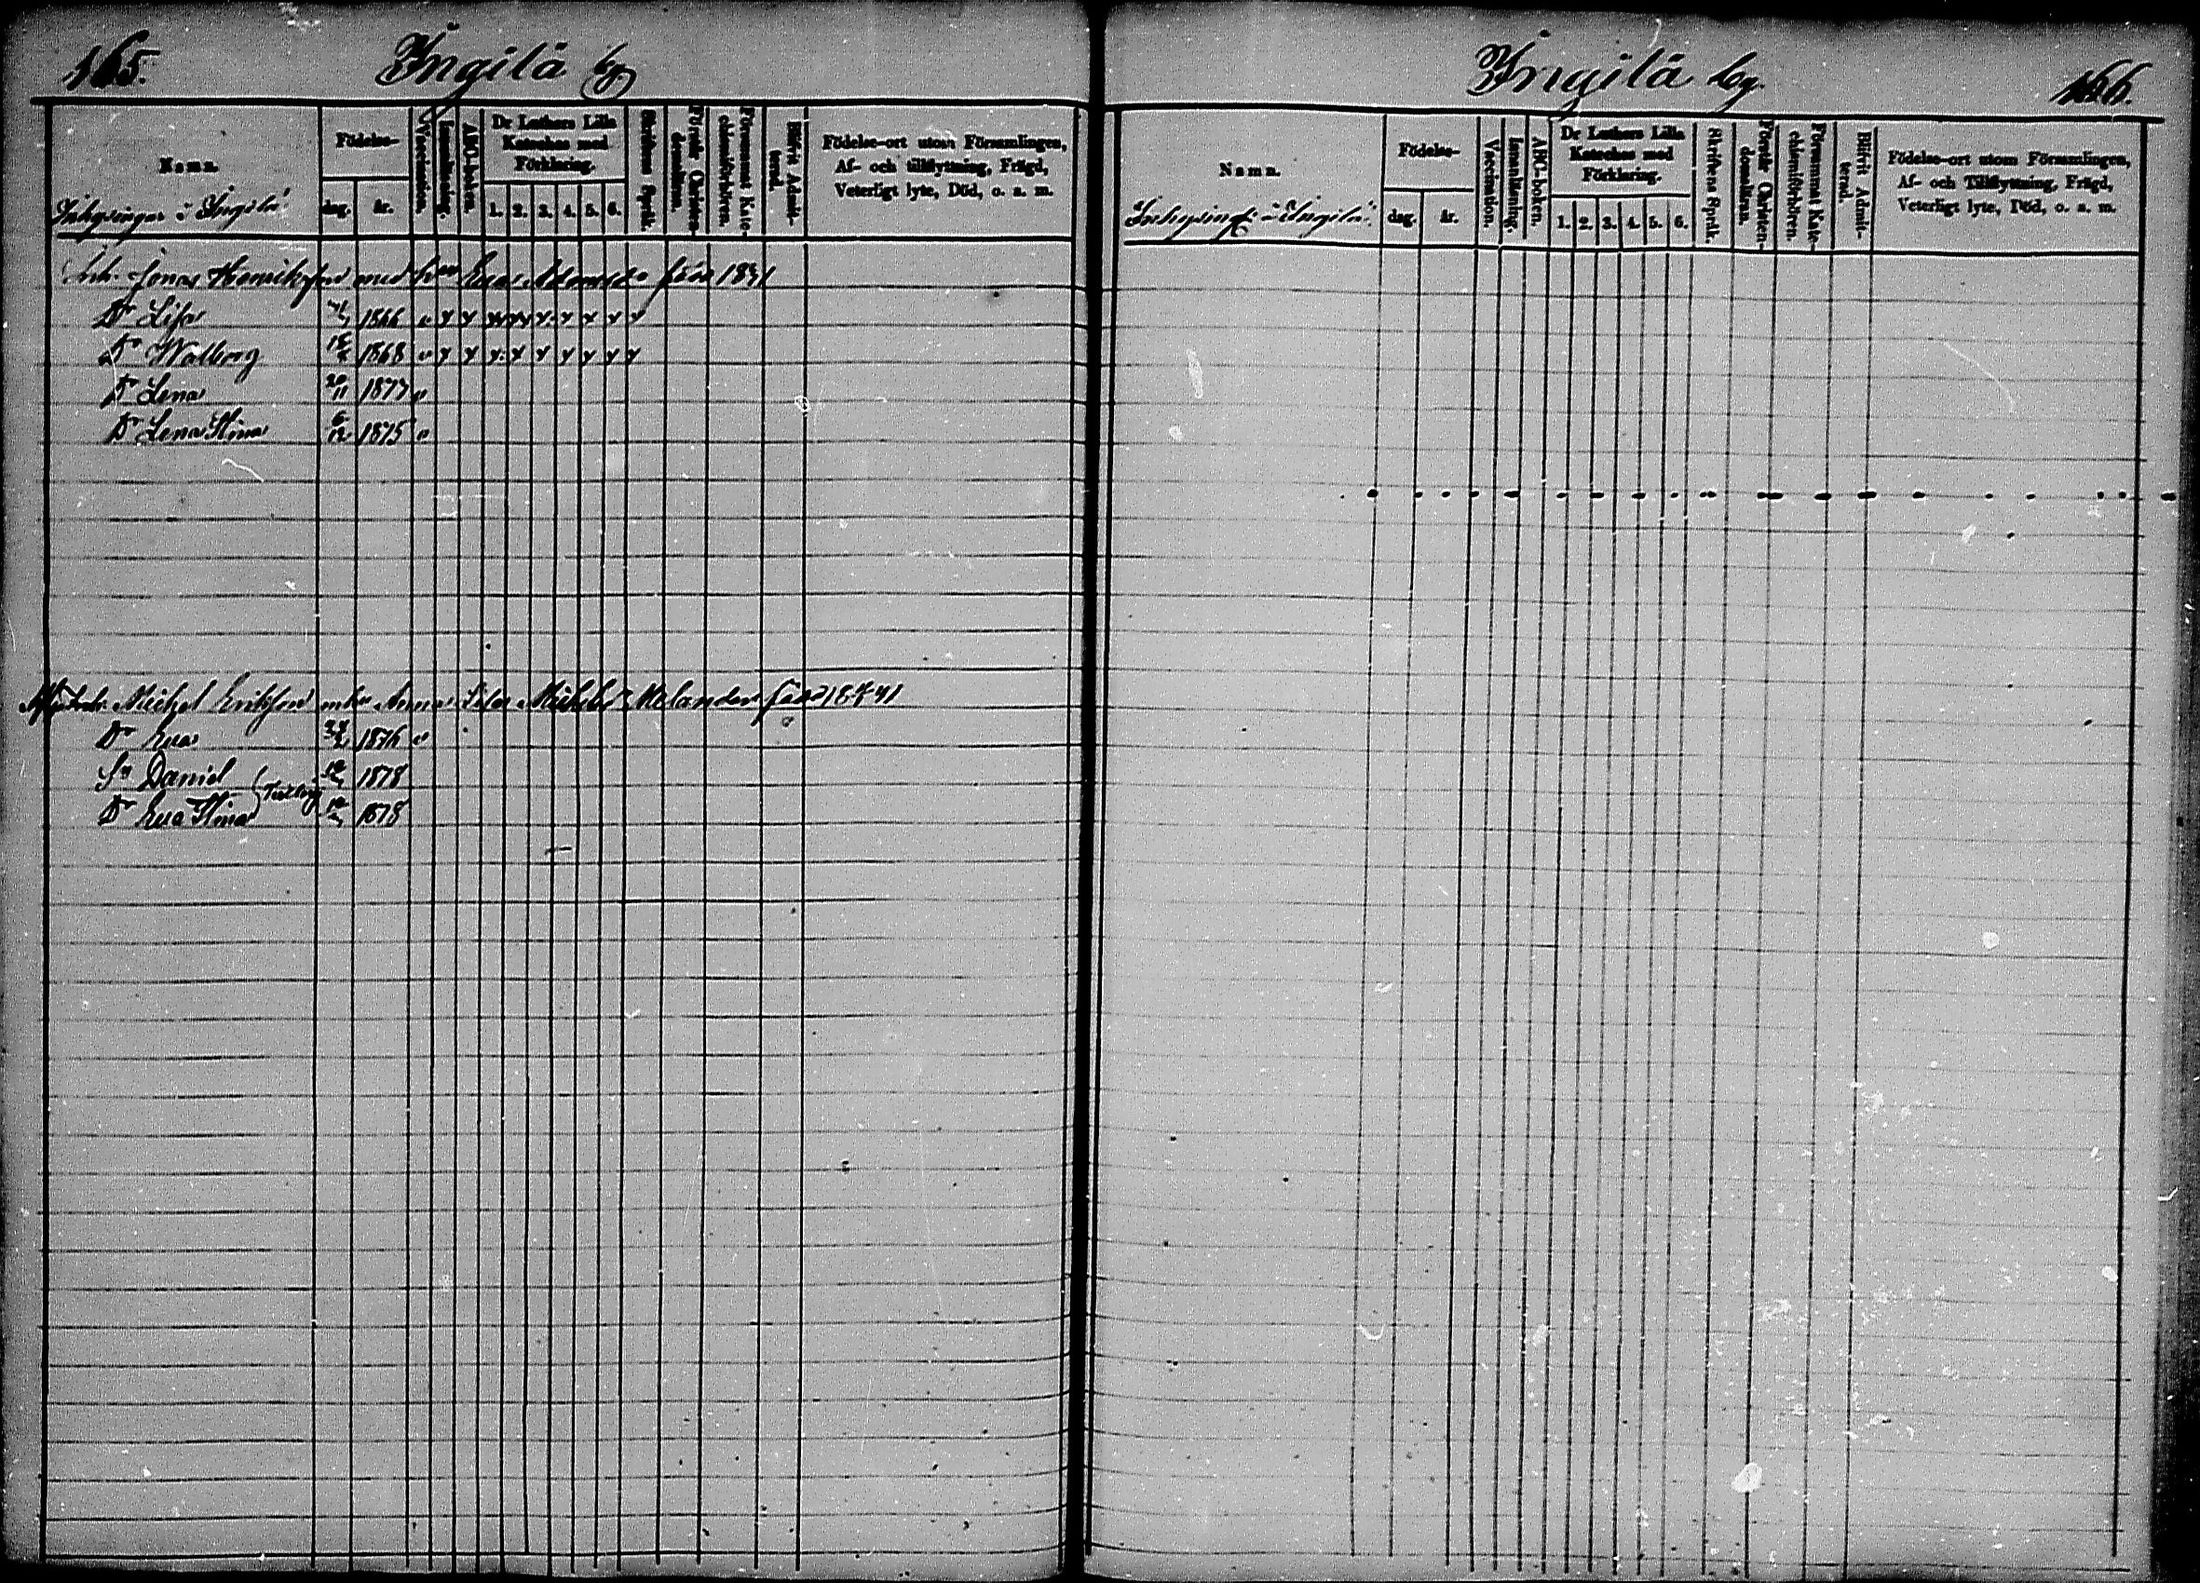 165.
Ingilä by
Namn.
Inhysingar i Ingilä
Födelse-
dag. år.
Vaccination.
Innanläsning.
ABC-boken.
Dr Luthers Lilla Kateches med Förklaring.
1. 2. 3. 4. 5. 6.
Skriftens Språk.
Förstår Christendomsläran.
Försummat Katechismiförhören.
Blifvit Admitterad.
Födelse-ort utom Församlingen,
Af- och tillflyttning, Frägd,
Veterligt lyte, Död, o. s. m.
Inh. Jonas Henriksson med Eva sida 1831
Dr Lisa 1866
Dr Walborg 1868
Dr Lena 20/11 1877
Dr Lena Stina 6/12 1875
Michel Eriksson Anna Lisa Melander
Dr Eva 1876
Sn Daniel 1878
Dr Eva Stina 1878
Ingilä by.
166.
Namn.
Inhysing i Ingilä.
Födelse-
dag. år.
Vaccination.
Innanläsning.
ABC-boken.
Dr Luthers Lilla Kateches med Förklaring.
1. 2. 3. 4. 5. 6.
Skriftens Språk.
Förstår Christendomsläran.
Försummat Katechismiförhören.
Blifvit Admitterad.
Födelse-ort utom Församlingen,
Af- och Tillflyttning, Frägd,
Veterligt lyte, Död, o. s. m.